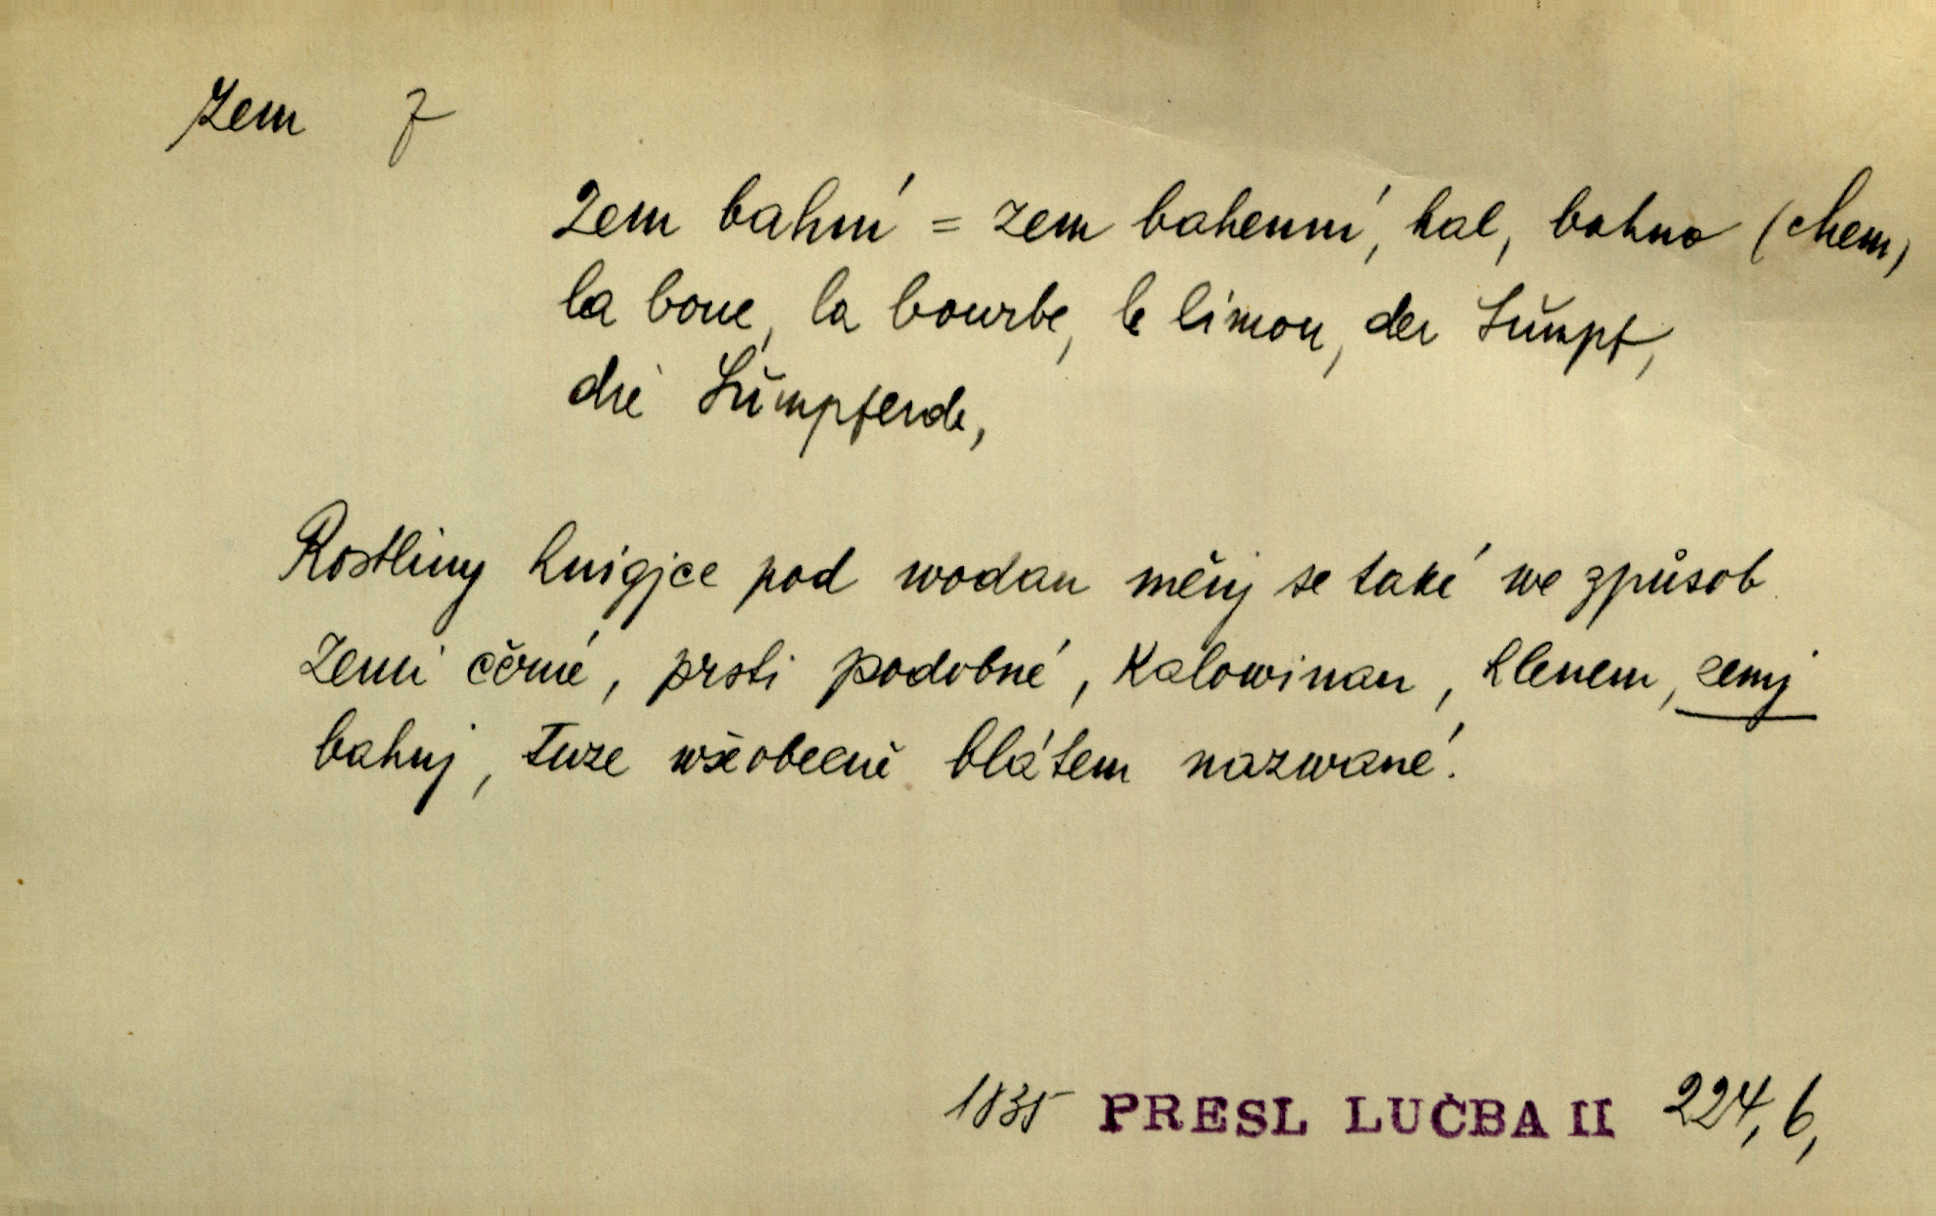 Zem f
Zem bahní = zem bahenní, kal, bahno (chem)
la boue, la bourbe, le limon, der Sŭmpf,
die Sŭmpferde,
Rostliny hnigjce pod wodau měnj se také we způsob
zemi černé, prsti podobné, kalowinau, hlenem, zemj
bahnj, tuze wšeobecně blátem nazwané.
1835 PRESL LUČBA II 224, 6,